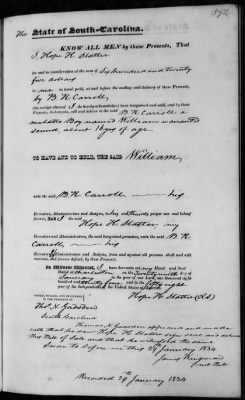 392
The State of South-Carolina.
KNOW ALL MEN by these Presents, That
I, Hope H. Slatter
for and in consideration of the sum of Six Hundred and twenty
five dollars
to me in hand paid, at and before the sealing and delivery of these Presents,
by B R Carroll,
(the receipt whereof I do hereby acknowledge) have bargained and sold, and by these
Presents, do bargain, sell and deliver to the said B R Carroll a
mulatto Boy named William warranted
sound about 18 years of age.
TO HAVE AND TO HOLD, THE SAID William,
unto the said B. R. Carroll his
Executors, Administrators and Assigns, to his and their only proper use and behoof
forever. And I the said
Hope H. Slatter my
Executors and Administrators, the said bargained premises, unto the said B. R.
Carroll, his
Executors, Administrators and Assigns, from and against all persons shall and will
warrant, and forever defend, by these Presents.
In Witness Whereof, I have hereunto set my Hand and Seal
Dated at Charleston on the Twenty ninth day of
January in the year of our Lord, one thousand eight
hundred and thirty four and in the fifty eight
year of the Independence of the United States of America.
Hope H. Slatter (L.S.)
SIGNED, SEALED, AND DELIVERED
IN THE PRESENCE OF
Thos. N. Gadsden
South Carolina
Thomas N. Gadsden appeared and made
oath that he saw Hope H. Slatter sign seal and deliver
this Bill of Sale and that he witnessed the same
Sworn to before me this 29 January 1834
James Kingman
Recorded 29th January 1834